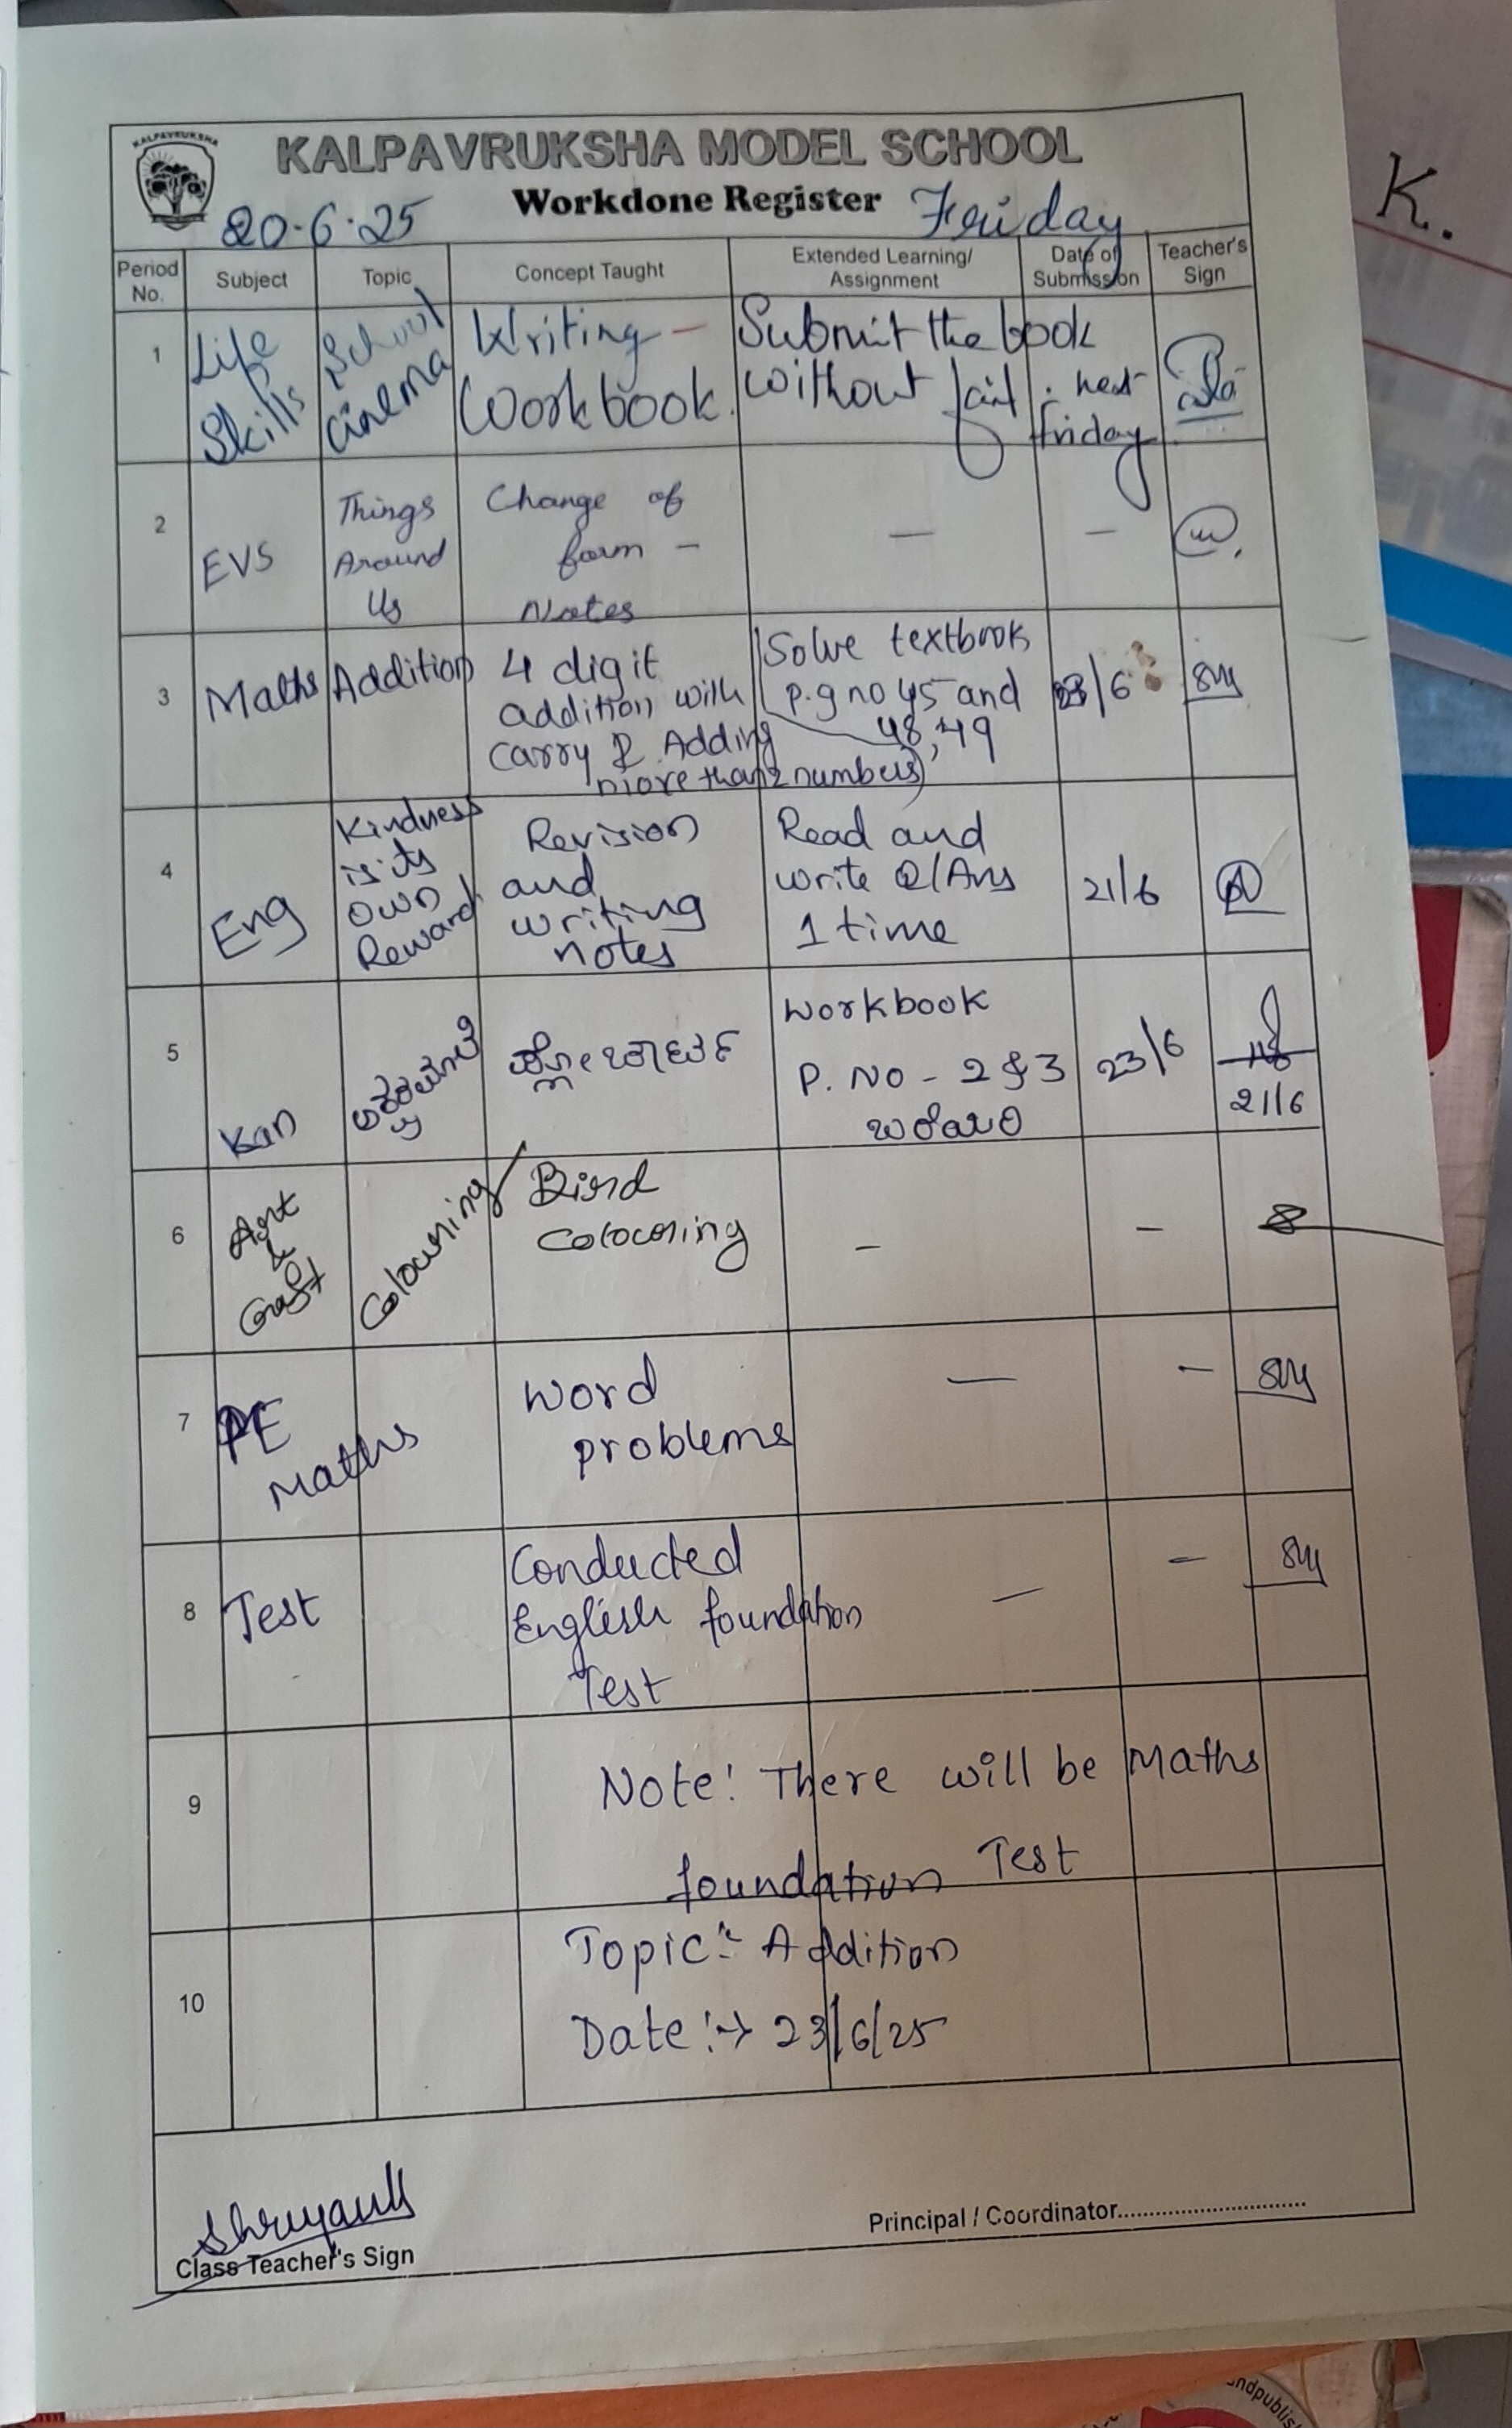 KALPAVRUKSHA
KALPAVRUKSHA MODEL SCHOOL
Workdone Register
20.6.25
Friday
Period No.
Subject
Topic
Concept Taught
Extended Learning/ Assignment
Date of Submission
Teacher's Sign
1
Life Skills
School cinema
Writing –
Workbook.
Submit the book
without fail.
next
friday
2
EVS
Things
Around
Us
Change of
form –
Notes
—
–
3
Maths
Addition
4 digit
addition with
carry & Adding
more than 2 numbers)
Solve textbook
p.g no 45 and
48, 49
23/6
4
Eng
Kindness
is its
own
Reward
Revision
and
writing
notes
Read and
write Q/Ans
1 time
21/6
5
Kan
Workbook
P. No – 2 & 3
ಬರೆಯಿರಿ
23/6
21/6
6
Art
&
Craft
Colouring
Bird
Colouring
–
–
7
PE
Maths
Word
problems
—
–
8
Test
Conducted
English foundation
Test
—
–
9
Note: There will be Maths
foundation Test
10
Topic:- Addition
Date:→ 23/6/25
Class Teacher's Sign
Principal / Coordinator..............................
K.